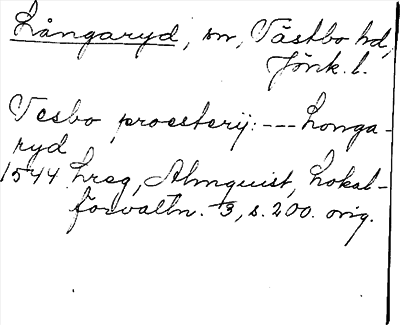 Långaryd, sn, Västbo hd,
Jönk. l.
Vesbo proesterij: --- Longa-
ryd
1544 Lreg, Almquist, Lokal-
förvaltn. 3, s. 200. orig.